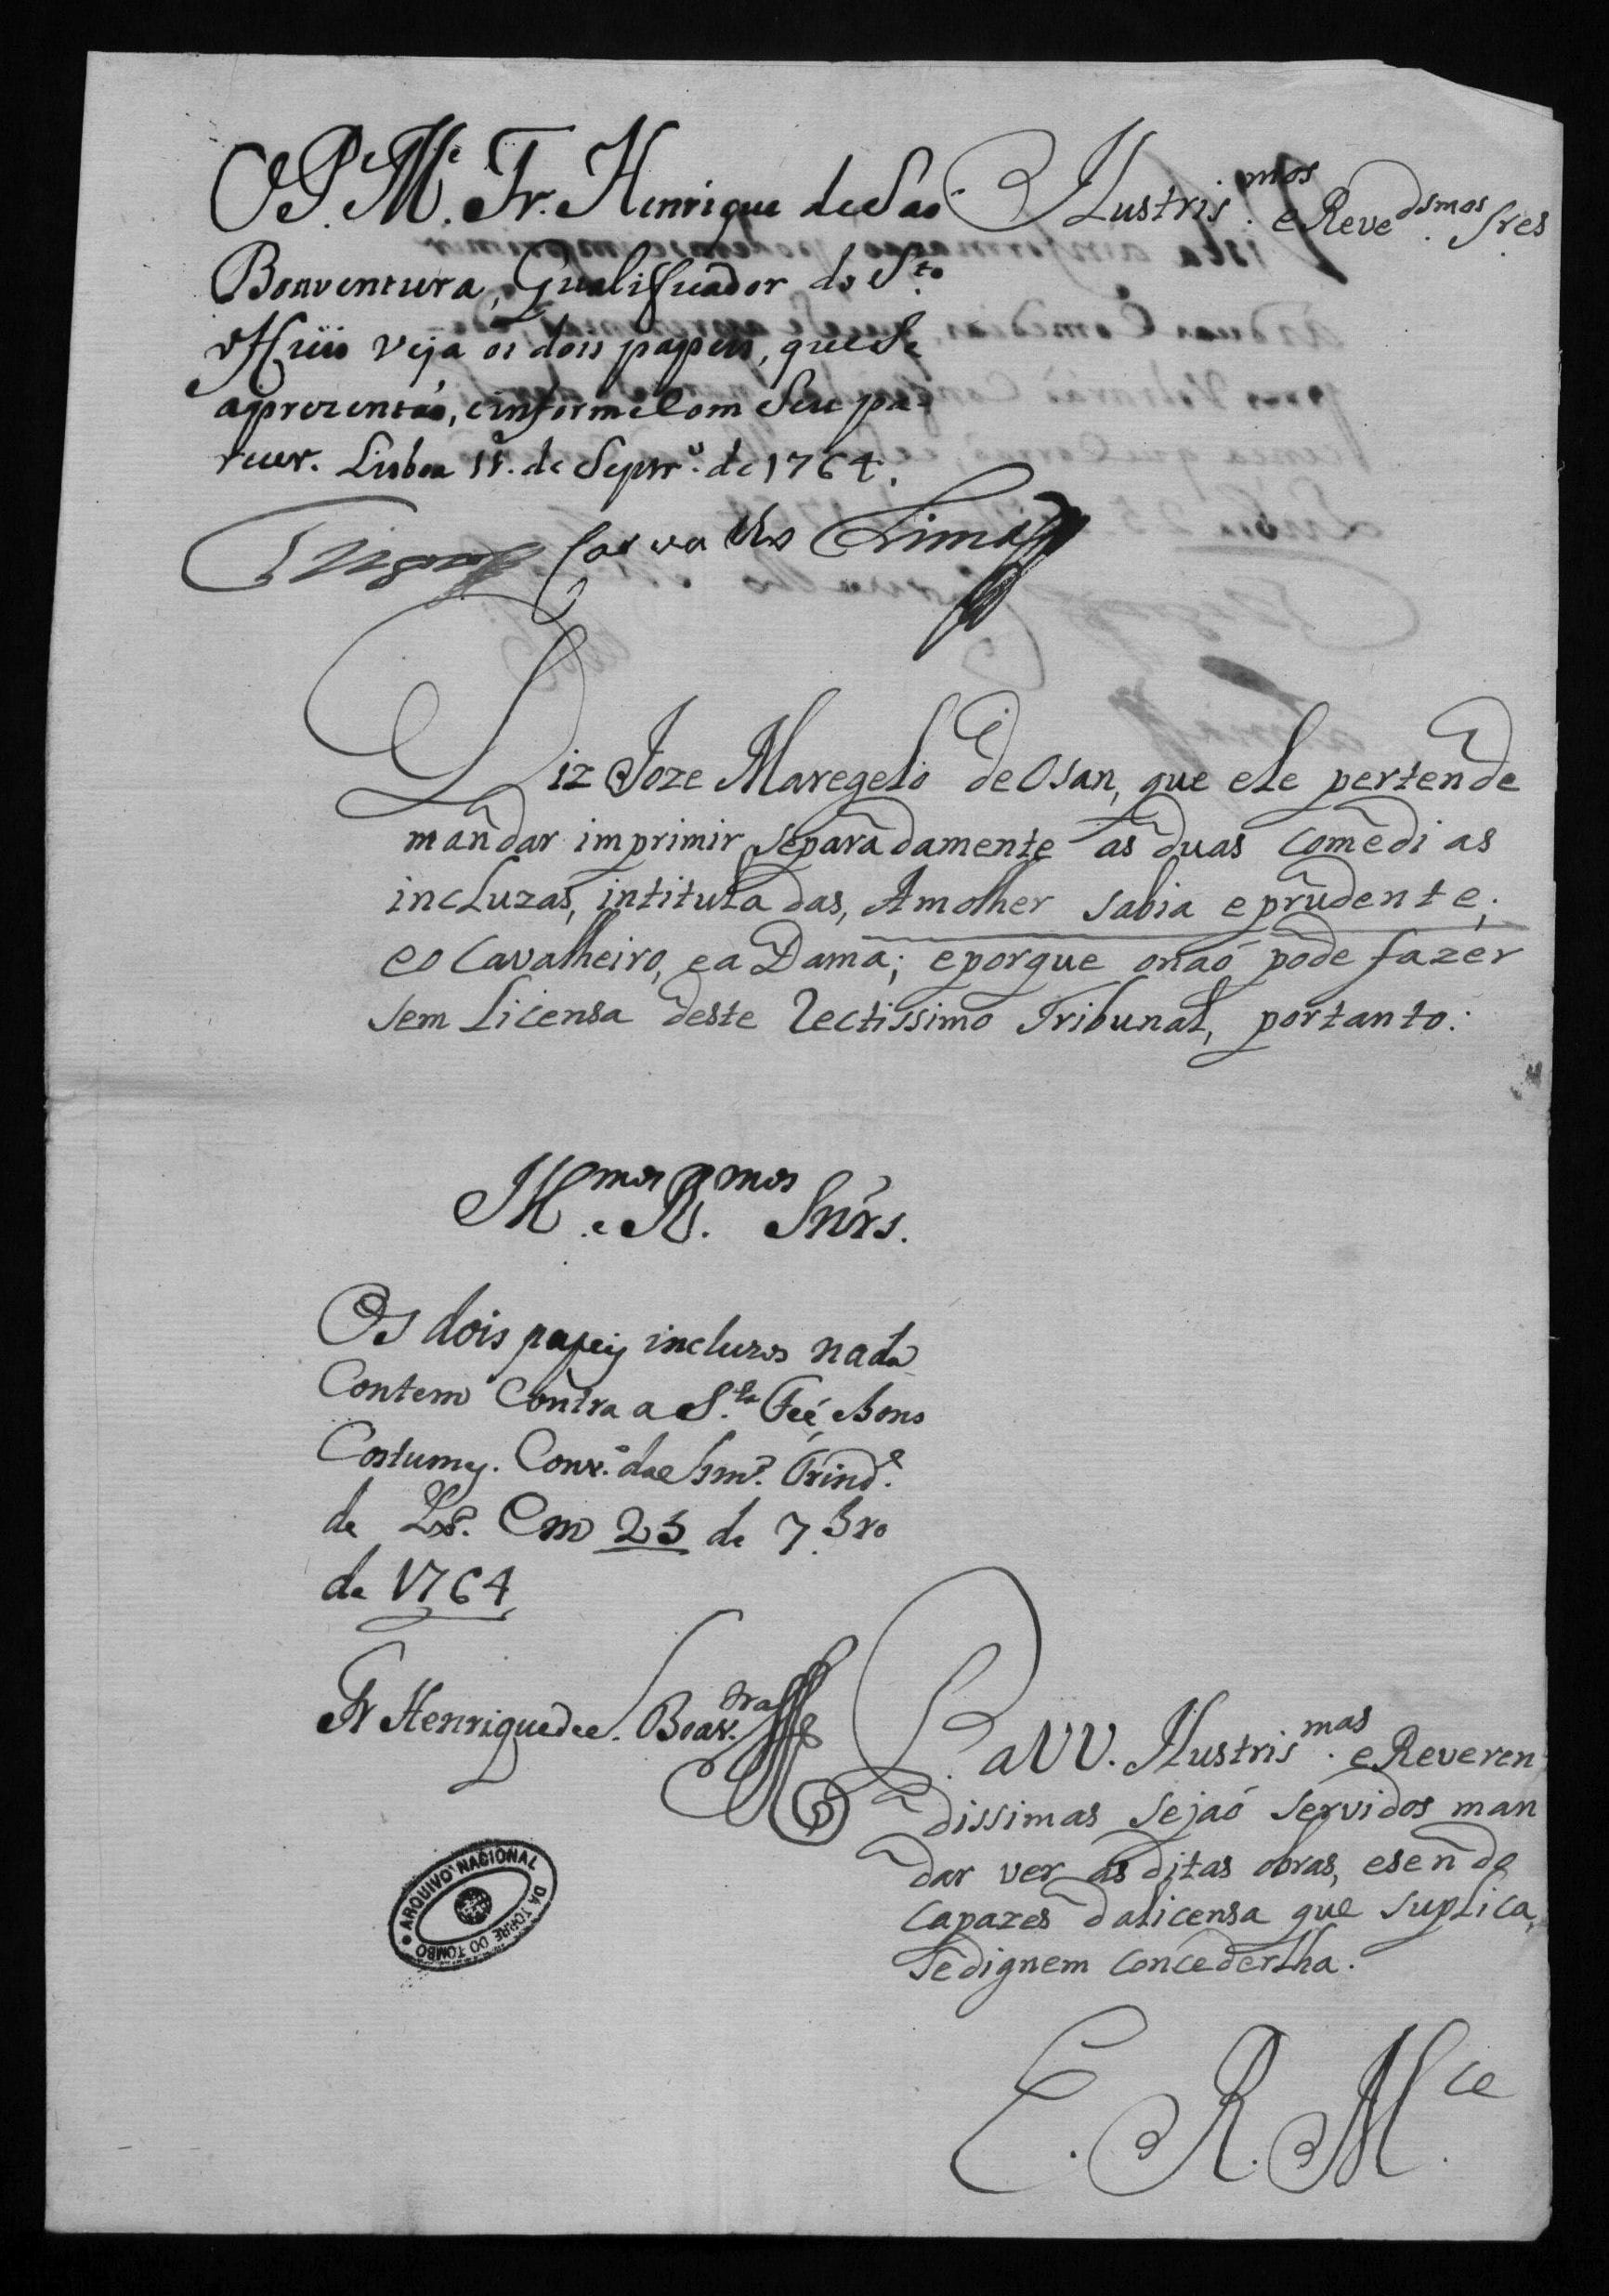 O P. M.e Fr. Henrique de Sao
Bonventura, Qualificador do S.to
Officio veja os dois papeis, que se
aprezentão, e informe com seu pa-
recer. Lisboa 11. de Septr.o de 1764.
Trigozo Carvalho Lima
Illustris.mos e Reve.dsmos Sres
Diz Joze Maregelo de Osan, que ele pertende
mandar imprimir separadamente as duas comedias
incluzas, intituladas, A molher sabia e prudente;
e o Cavalheiro, e a Dama; e porque o naó pode fazer
sem licensa deste Rectissimo Tribunal, portanto:
Ill.mos e R.mos Snrs.
Os dois papeis incluzos nada
Contem Contra a S.ta Fé, e Bons
Costumes. Conv.to da SSm.a Trind.e
de Lx.a Em 23 de 7.bro
de 1764
Fr Henrique de S. Boav.tra
P. a VV. Illustris.mas e Reveren
dissimas sejaó servidos man
dar ver as ditas obras, e sendo
capazes da licensa que suplica,
se dignem concederlha.
E. R. M.ce
ARQUIVO NACIONAL
DA TORRE DO TOMBO